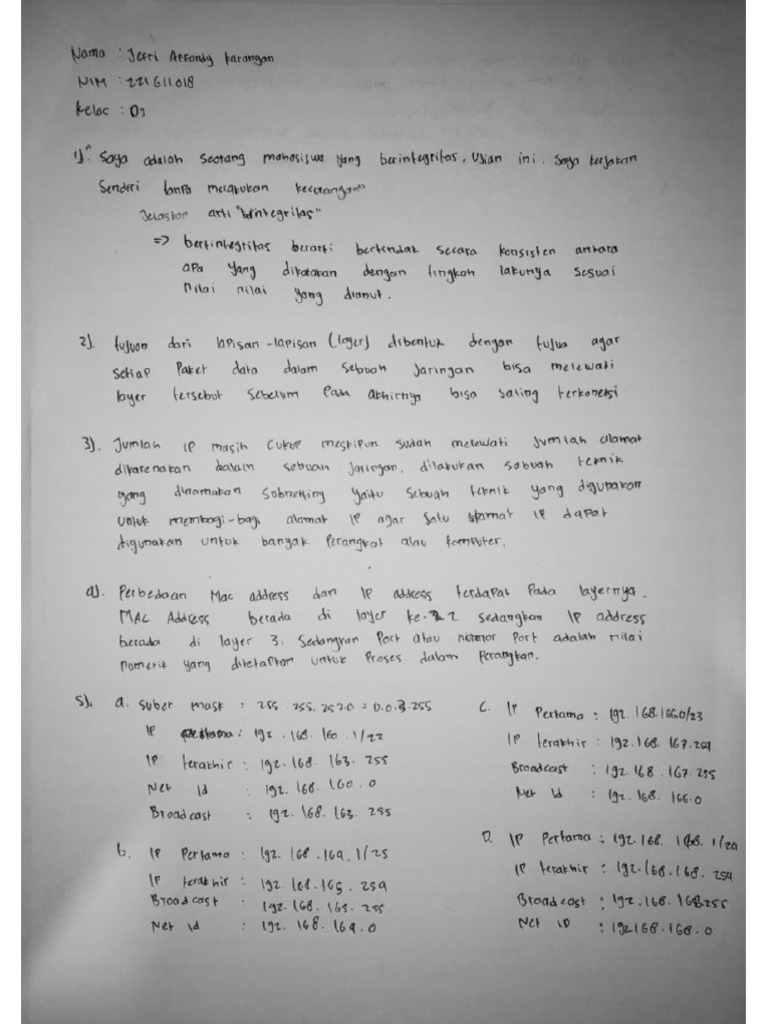 Nama : Jefri Arfandy Karangan
NIM : 221611018
Kelas : D3
1). "Saya adalah seorang mahasiswa yang berintegritas, Ujian ini. Saya kerjakan
Sendiri tanpa melakukan kecurangan"
Jelaskan arti "berintegritas"
=> bertintegritas berarti bertindak secara konsisten antara
apa yang dikatakan dengan tingkah lakunya sesuai
Nilai nilai yang dianut.
2). tujuan dari lapisan-lapisan (layer) dibentuk dengan tujua agar
setiap Paket data dalam sebuah Jaringan bisa melewati
layer tersebut sebelum pada akhirnya bisa saling terkoneksi
3). Jumlah IP masih cukup meskipun sudah melewati Jumlah alamat
dikarenakan dalam sebuah jaringan, dilakukan sabuah teknik
yang dinamakan Sobnetting yaitu sebuah teknik yang digunakan
untuk membagi-bagi alamat IP agar satu alamat IP dapat
digunakan untuk banyak perangkat atau komputer.
4). Perbedaan Mac address dan IP address terdapat pada layernya.
MAC Address berada di layer ke-2 sedangkan IP address
berada di layer 3. Sedangkan Port atau nomor Port adalah nilai
nomerik yang ditetapkan untuk Proses dalam Perangkan.
5). a. Subet mask : 255.255.252.0 = 0.0.3.255
IP Pertama : 192.168.160.1/22
IP terakhir : 192.168.163.255
Net Id : 192.168.160.0
Broadcast : 192.168.163.255
b. IP Pertama : 192.168.164.1/25
IP terakhir : 192.168.165.254
Broadcast : 192.168.165.255
Net Id : 192.168.164.0
C. IP Pertama : 192.168.166.0/23
IP terakhir : 192.168.167.254
Broadcast : 192.168.167.255
Net Id : 192.168.166.0
D. IP Pertama : 192.168.168.1/24
IP terakhir : 192.168.168.254
Broadcast : 192.168.168.255
Net ID : 192168.168.0